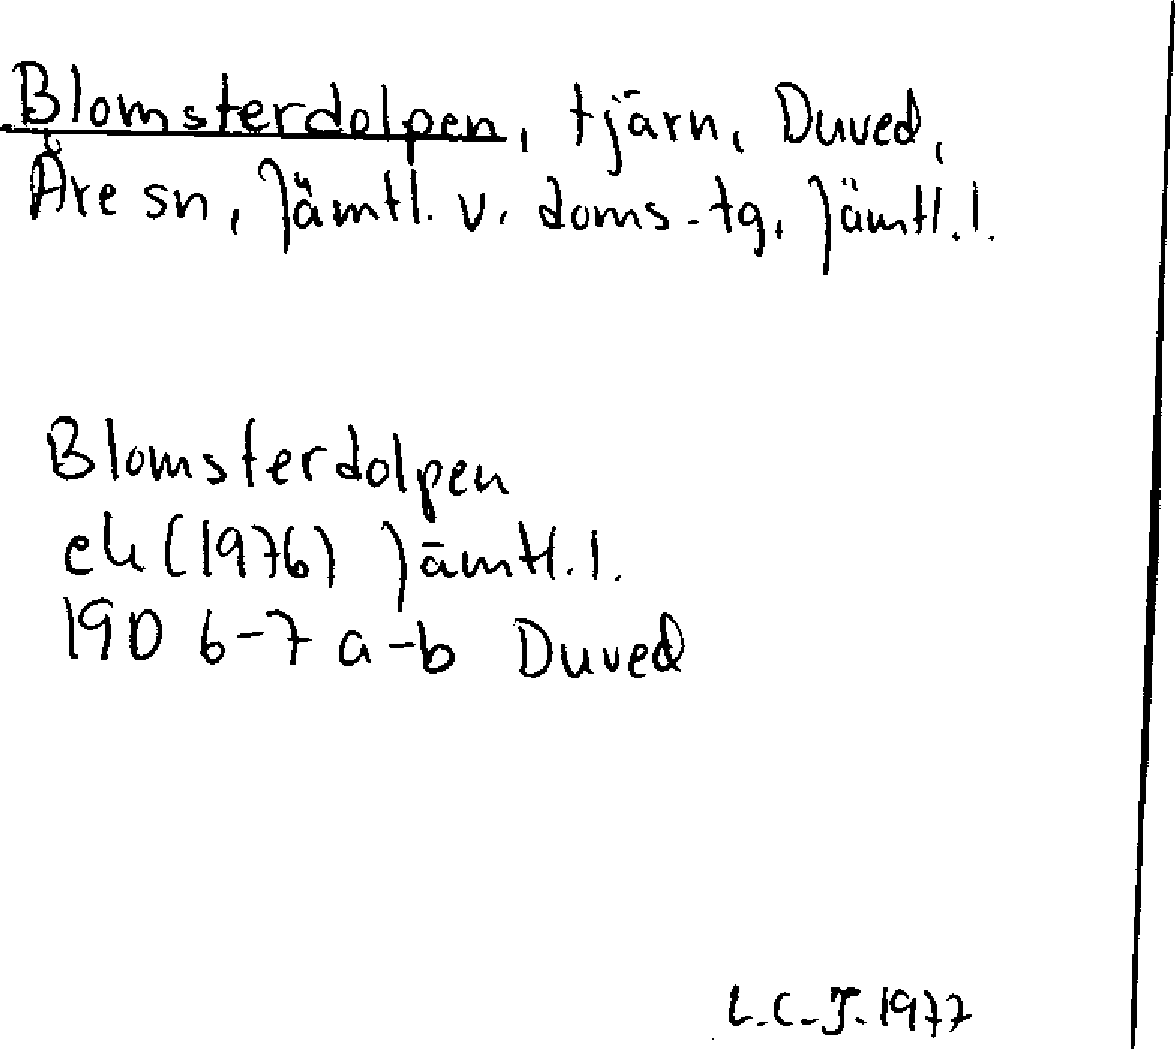 Blomsterdolpen, tjärn, Duved,
Åre sn, Jämtl. v. doms-tg, Jämtl.l.
Blomsterdolpen
ek (1976) Jämtl.l.
19D 6-7 a-b Duved
L.C-J. 1977